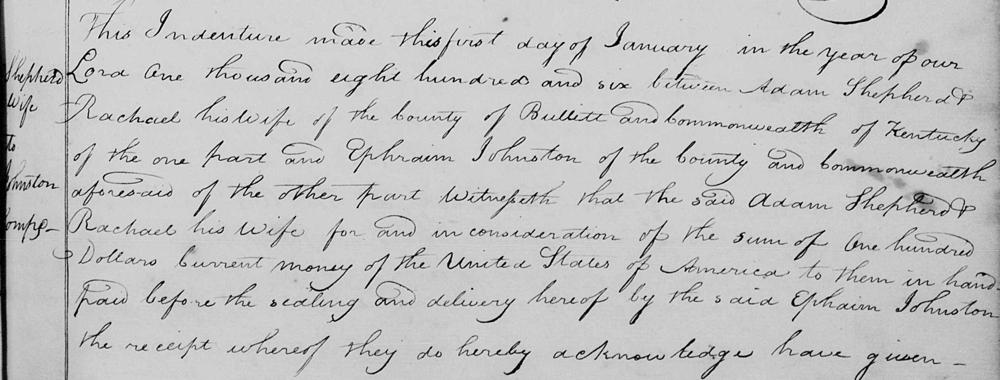 This Indenture made this first day of January in the year of our
Lord One thousand eight hundred and six between Adam Shepherd &
Rachael his wife of the County of Bullett and Commonwealth of Kentucky
of the one part and Ephraim Johnston of the County and Commonwealth
aforesaid of the other part Witnesseth that the said Adam Shepherd &
Rachael his Wife for and in consideration of the sum of One hundred
Dollars Current money of the United States of America to them in hand
paid before the sealing and delivery hereof by the said Ephaim Johnston
the receipt whereof they do hereby acknowledge have given—
Shepherd
Wife
to
Johnston